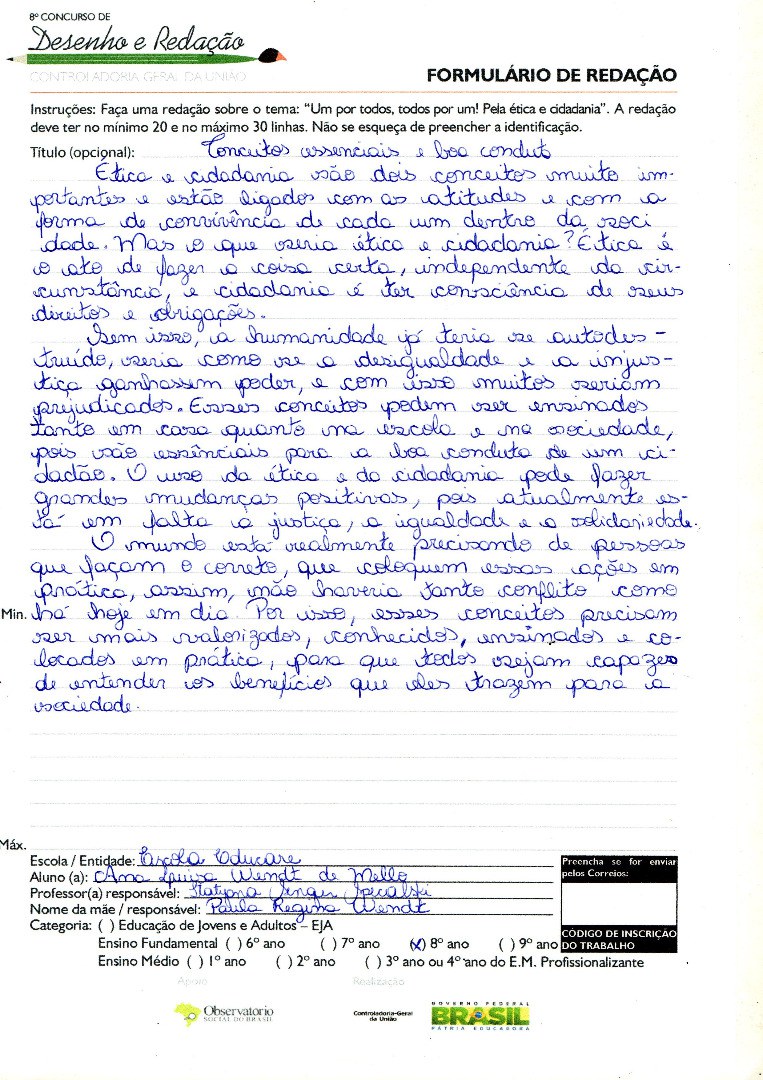 8º CONCURSO DE
Desenho e Redação
CONTROLADORIA GERAL DA UNIÃO
FORMULÁRIO DE REDAÇÃO
Instruções: Faça uma redação sobre o tema: "Um por todos, todos por um! Pela ética e cidadania". A redação
deve ter no mínimo 20 e no máximo 30 linhas. Não se esqueça de preencher a identificação.
Título (opcional): Conceitos essenciais e boa conduta
Ética e cidadania são dois conceitos muito im-
portantes e estão ligados com as atitudes e com a
forma de convivência de cada um dentro da soci
dade. Mas o que seria ética e cidadania? Ética é
o ato de fazer a coisa certa, independente da cir-
cunstância, e cidadania é ter consciência de seus
direitos e obrigações.
Sem isso, a humanidade já teria se autodes-
truído, seria como se a desigualdade e a injus-
tiça ganhassem poder, e com isso muitos seriam
prejudicados. Esses conceitos podem ser ensinados
tanto em casa quanto na escola e na sociedade,
pois são essênciais para a boa conduta de um ci-
dadão. O uso da ética e da cidadania pode fazer
grandes mudanças positivas, pois atualmente es-
tá em falta a justiça, a igualdade e a solidariedade.
O mundo está realmente precisando de pessoas
que façam o correto, que coloquem essas ações em
prática, assim, não haveria tanto conflito como
Min. há hoje em dia. Por isso, esses conceitos precisam
ser mais valorizados, conhecidos, ensinados e co-
locados em prática, para que todos sejam capazes
de entender os benefícios que eles trazem para a
sociedade.
Máx.
Escola / Entidade: Escola Educare
Aluno (a): Ana Luiza Wendt de Mello
Professor(a) responsável: Tatyana
Nome da mãe / responsável: Paula Regina Wendt
Categoria: ( ) Educação de Jovens e Adultos – EJA
Ensino Fundamental ( ) 6º ano ( ) 7º ano (x) 8º ano ( ) 9º ano
Ensino Médio ( ) 1º ano ( ) 2º ano ( ) 3º ano ou 4º ano do E.M. Profissionalizante
Preencha se for enviar
pelos Correios:
CÓDIGO DE INSCRIÇÃO
DO TRABALHO
Apoio
Realização
Observatório
SOCIAL DO BRASIL
Controladoria-Geral
da União
GOVERNO FEDERAL
BRASIL
PÁTRIA EDUCADORA